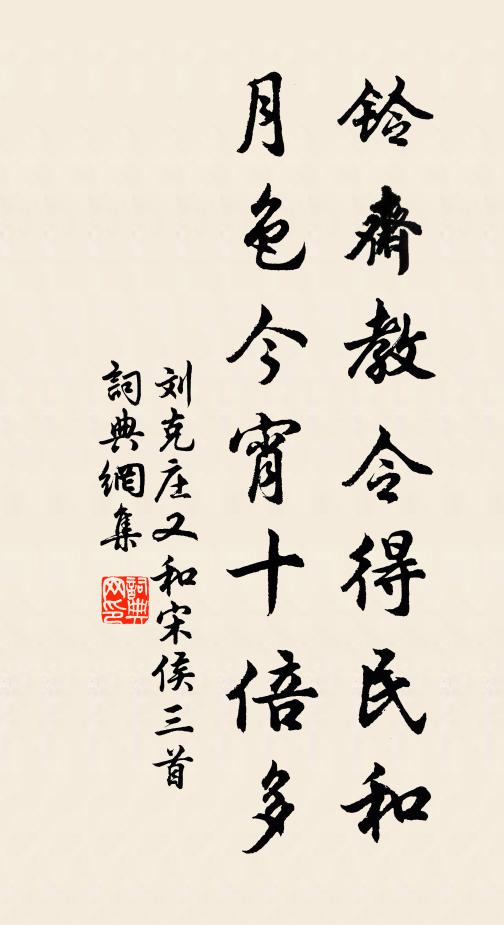 鈴齋教令得民和
月色今宵十倍多
刘克庄又和宋侯三首
詞典網集
詞典网印